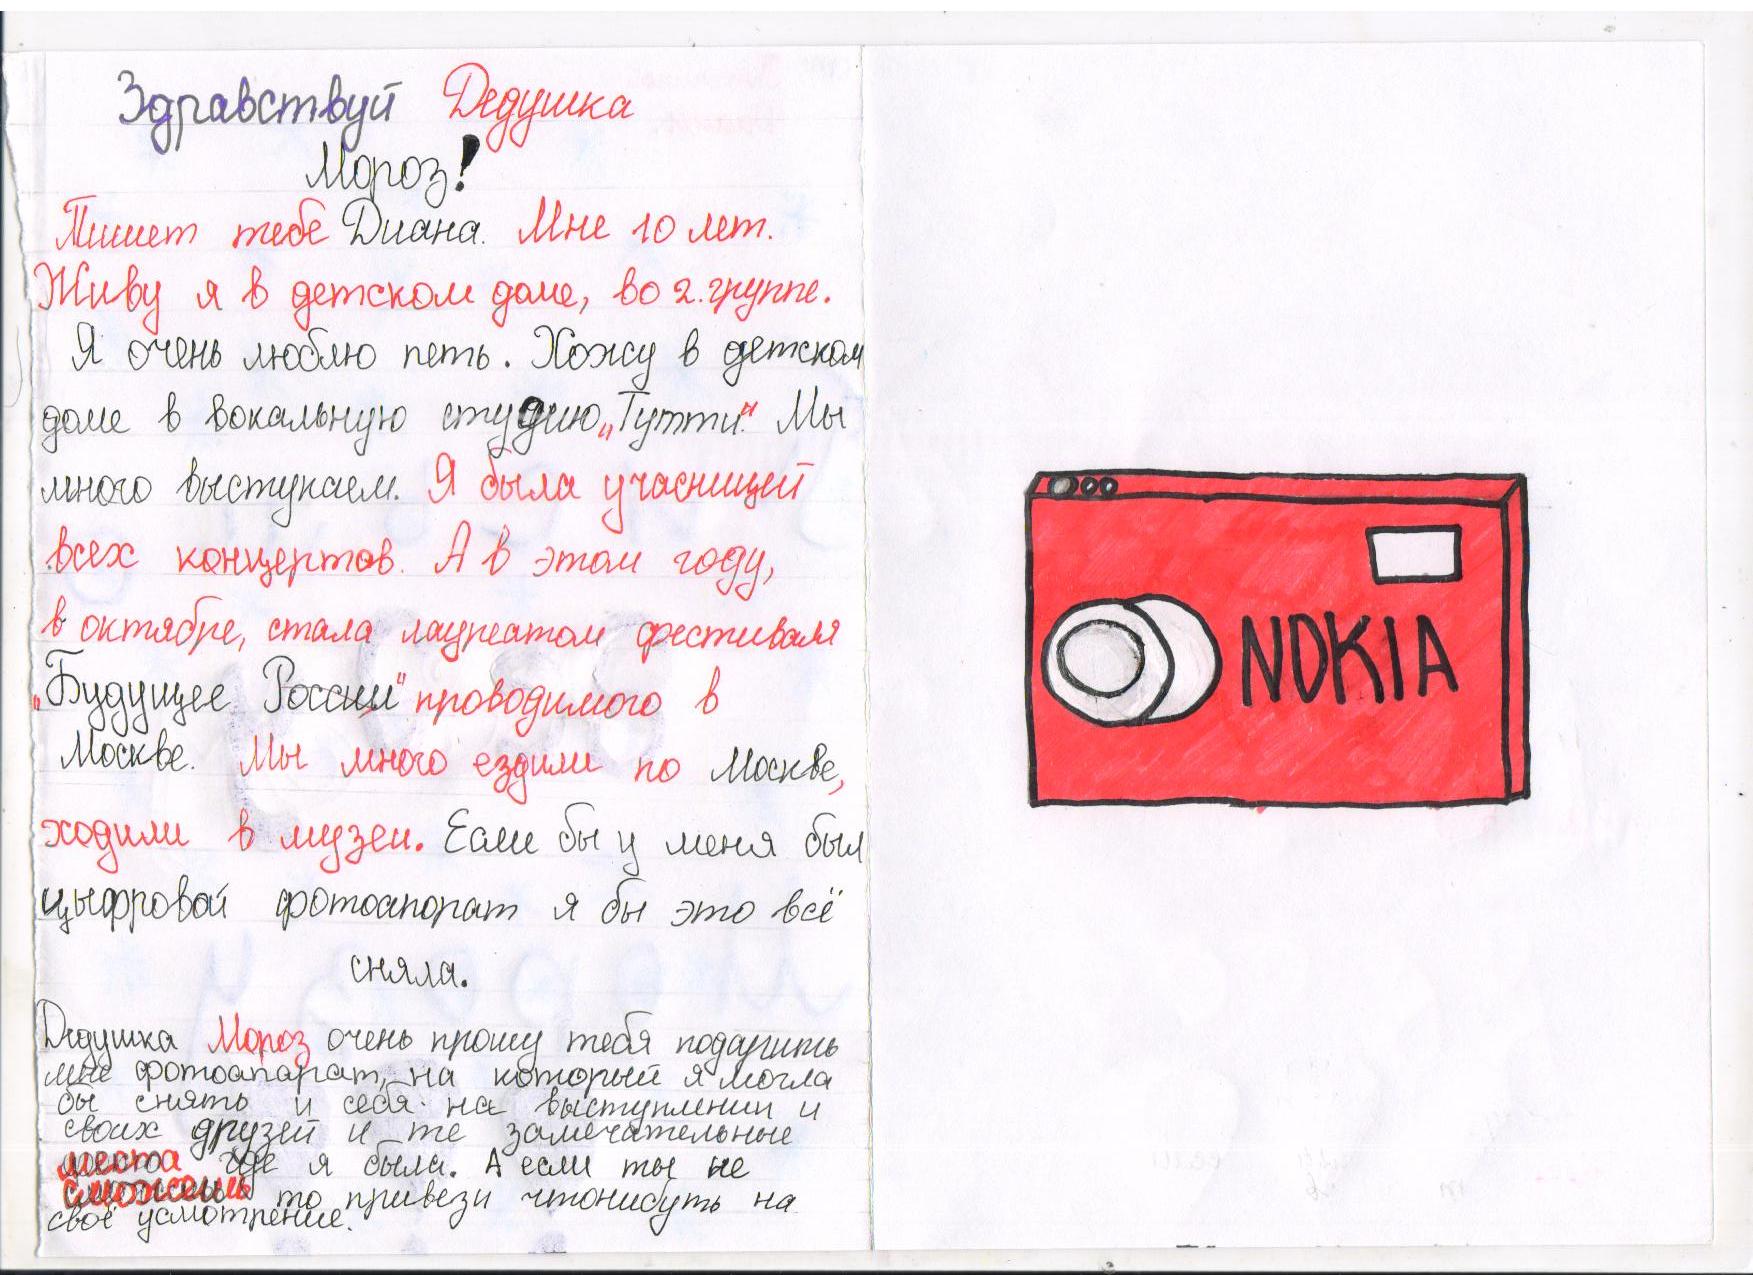 Здравствуй Дедушка
Мороз!
Пишет тебе Диана. Мне 10 лет.
Живу я в детском доме, во 2. группе.
Я очень люблю петь. Хожу в детском
доме в вокальную студию „Тутти“. Мы
много выступаем. Я была учасницей
всех концертов. А в этом году,
в октябре, стала лауреатом фестиваля
„Будущее России“ проводимого в
Москве. Мы много ездили по Москве,
ходили в музеи. Если бы у меня был
цыфровой фотоапорат я бы это всё
сняла.
Дедушка Мороз очень прошу тебя подарить
мне фотоапарат, на который я могла
бы снять и себя на выступлении и
своих друзей и те замечательные
места где я была. А если ты не
сможешь то привези чтонибуть на
своё усмотрение.
NOKIA